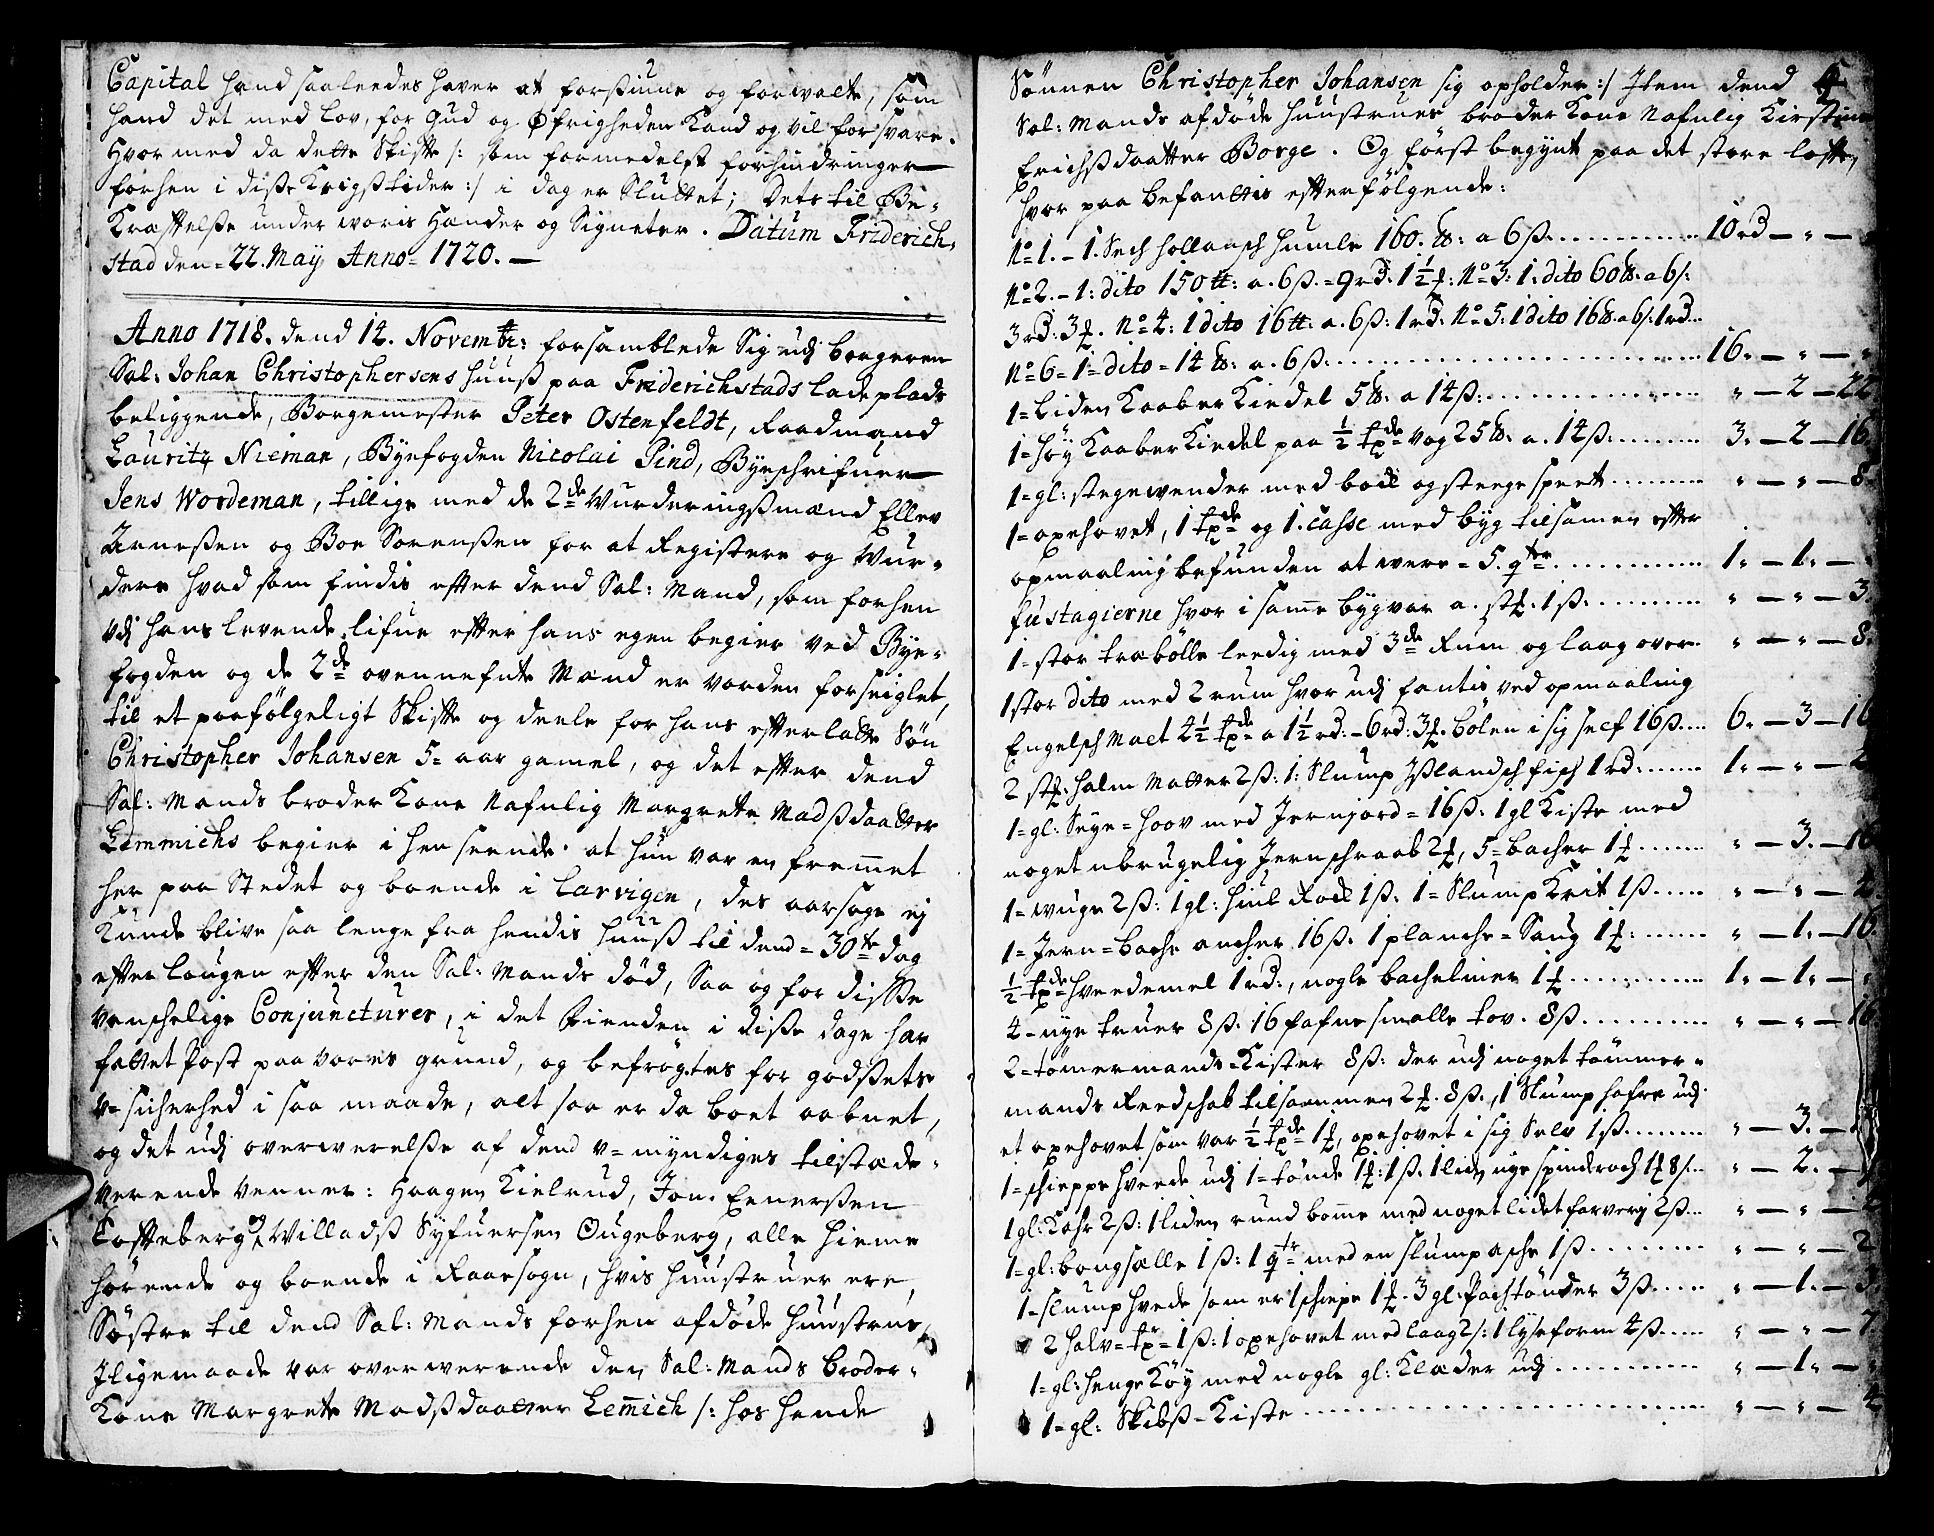 Capital hand saaleedes haver at forsiune og forvalte, som
hand det med Lov, for Gud og Øfrigheden Kand og vil forsvare.
Hvor med da dette Skifte /: som formedelst forhindringer
forhen i disse Krigstider :/ i dag er Sluttet; Dets til Be-
Kræftelße under woris Hænder og Signeter. Datum Friderich-
stad den = 22. Maÿ Anno = 1720. —
Anno 1718. dend 14. Novembr: forsamblede Sig udj borgeren
Sal: Johan Christophersens huuß paa Friderichstads ladeplads
beliggende, Borgemester Peter Ostenfeldt, Raadmand
Lauritz Nieman, Byefogden Nicolai Pind, Byeschrifuer
Jens Wordeman, tillige med de 2de Wurderingßmænd Ellev
Arneßen og Boe Sorenßen for at Registere og Wur-
dere hvad som findis efter dend Sal: Mand, som forhen
udj hans levende lifue efter hans egen begier ved Bye-
fogden og de 2de ovennefnte Mænd er vorden forseiglet,
til et paafölgeligt Skifte og deele for hans efterlatte Sön
Christopher Johansen 5= aar gamel, og det efter dend
Sal: Mands broder Kone Nafnlig Margrete Madßdaatter
Lemmichs begier i hen seende at hun var en fremmet
her paa Stedet og boende i Larvigen, des aarsage ej
Kunde blive saa lenge fra hendis huuß til dend = 30te dag
efter laugen efter den Sal: Mands död, Saa og for disse
vanschelige Conjuncturer, i det Fienden i disse dage har
fattet Post paa vores grund, og befrögtes for godßets
v=sicherhed i saa maade, alt saa er da boet aabnet,
og det udj overwerelße af dend v=myndiges tilstæde-
verende venner: Haagen Kielrud, Jon Eenerßen
Tofteberg og Willadß Syfuersen Ougeberg, alle hieme
hörende og boende i Raaesogn, hvis huustruer ere,
Söstre til dend Sal: Mands forhen afdöde huustrue,
Jligemaade var overwerende den Sal: Mands Broder-
Kone Margrete Madßdaatter Lemich /: hos hende
Sönnen Christopher Johansen sig opholder :/ Item dend 4
Sal: Mands afdöde huustrues broder Kone Nafnlig Kirstine
Erichßdaatter Borge. Og först begynt paa det store lofte,
hvor paa befantis efterfölgende:
No 1. – 1. Sech hollansch humle 160. ℔: a 6ß. 10 rd — „ —
No 2. – 1: dito 150 ℔: a. 6ß. = 9 rd. 1½ ƒ: No 3: 1: dito 60 ℔. a 6/:
3 rd: 3ƒ. No 4: 1 dito 16 ℔: a. 6ß: 1 rd: No 5: 1 dito 16 ℔. a 6/: 1 rd
No 6 = 1 = dito = 14 ℔: a. 6ß. 16. — „ — „
1 = Liden Kaaber Kiedel 5 ℔. a 14ß: „ — 2 — 22
1 = höy Kaaber Kiedel paa ½ tde vog 25 ℔. a. 14ß. 3. — 2 — 16
1 = gl: stegewender med bode og steege speet „ — „ — 8
1 = oxehovet, 1 tde og 1. casse med byg tilsamen efter
opmaaling befunden at were = 5. qtr 1. — 1. — „
fustagierne hvor i same byg var a. stƒ. 1 ß. „ — „ — 3.
1 = stor træbölle leedig med 3de Rum og laag over „ — „ — 8.
1 stor dito med 2 rum hvor udj fantis ved opmaaling
Engelsch Malt 4½ tde a 1½ rd: – 6 rd: 3ƒ. bölen i sig self 16ß. 6. — 3 — 16
2 stƒ: halm Matter 2ß: 1: Slump Jßlandsch fisch 1 rd: 1. — „ — 2
1 = gl: Seye = hoov med Jernjord = 16ß. 1 gl Kiste med
noget ubrugelig Jernschraab 2ƒ, 5 = bacher 1ƒ „ — 3. — 16
1 = wuge 2ß: 1 gl: hiul Rock 1ß: 1 = Slump Krit 1ß. „ — „ — 4
1 = Jern = bache ancher 16ß. 1 planche = Saug 1ƒ: „ — 1. — 16
½ tde hveedemel 1 rd:, nogle bachelmer 1ƒ 1. — 1. — „
4 – nye truer 8ß. 16 fafne smalle tov. 8ß „ — „ — 16
2 = tömermands = Kister 8ß: der udj noget tömmer-
mands Reedschab tilsammen 2ƒ. 8ß., 1 Slump hafre udj
et oxehovet som var ½ tde 1ƒ, oxehovet i sig Selv 1ß. „ — 3. —
1 = schieppe hveede udj 1 = tönde 1ƒ: 1ß. 1 liden nye spinderoch 1ƒ 8/. „ — 2. —
1 gl: Kahr 2ß: 1 liden rund bomme med noget lidet farverj 2ß. „ — „ —
1 = gl: bougsælle 1ß: 1 qtr med en slump asche 1ß „ — „ — 2
1 = slump hvede som er 1 schiepe 1ƒ. 3 gl: Pachtönder 3ß. „ — 1. — 3
2 halv = tr = 1ß: 1 oxehovet med laag 2/: 1 lyseform 4ß. „ — „ — 7.
1 = gl: henge Köy med nogle gl: Klæder udj „ — 1. — „
1 = gl: Skibß = Kiste „ — „ — 4